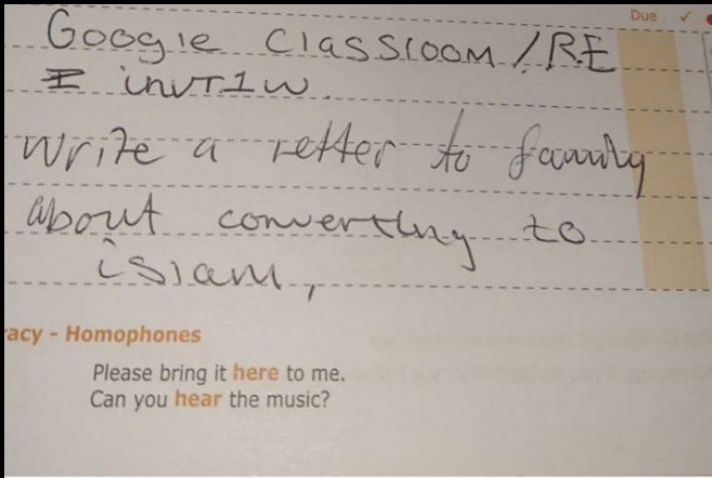 Due ✓
Google Classroom / RE
I invT1w.
Write a letter to family
about converting to
islam,
acy - Homophones
Please bring it here to me.
Can you hear the music?